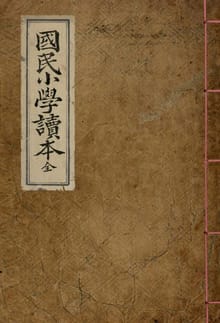 國民小學讀本 全